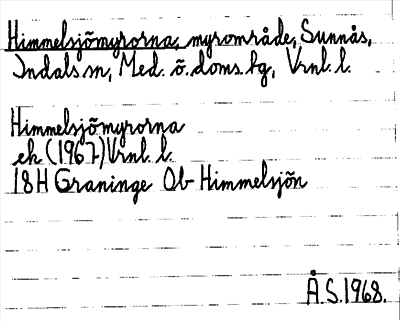 Himmelsjömyrorna, myrområde, Sunnås,
Indals sn, Med. ö. doms. hg, Vrnl. l.
Himmelsjömyrorna
ek (1967) Vrnl. l.
18H Graninge Ob Himmelsjön
Å.S. 1968.